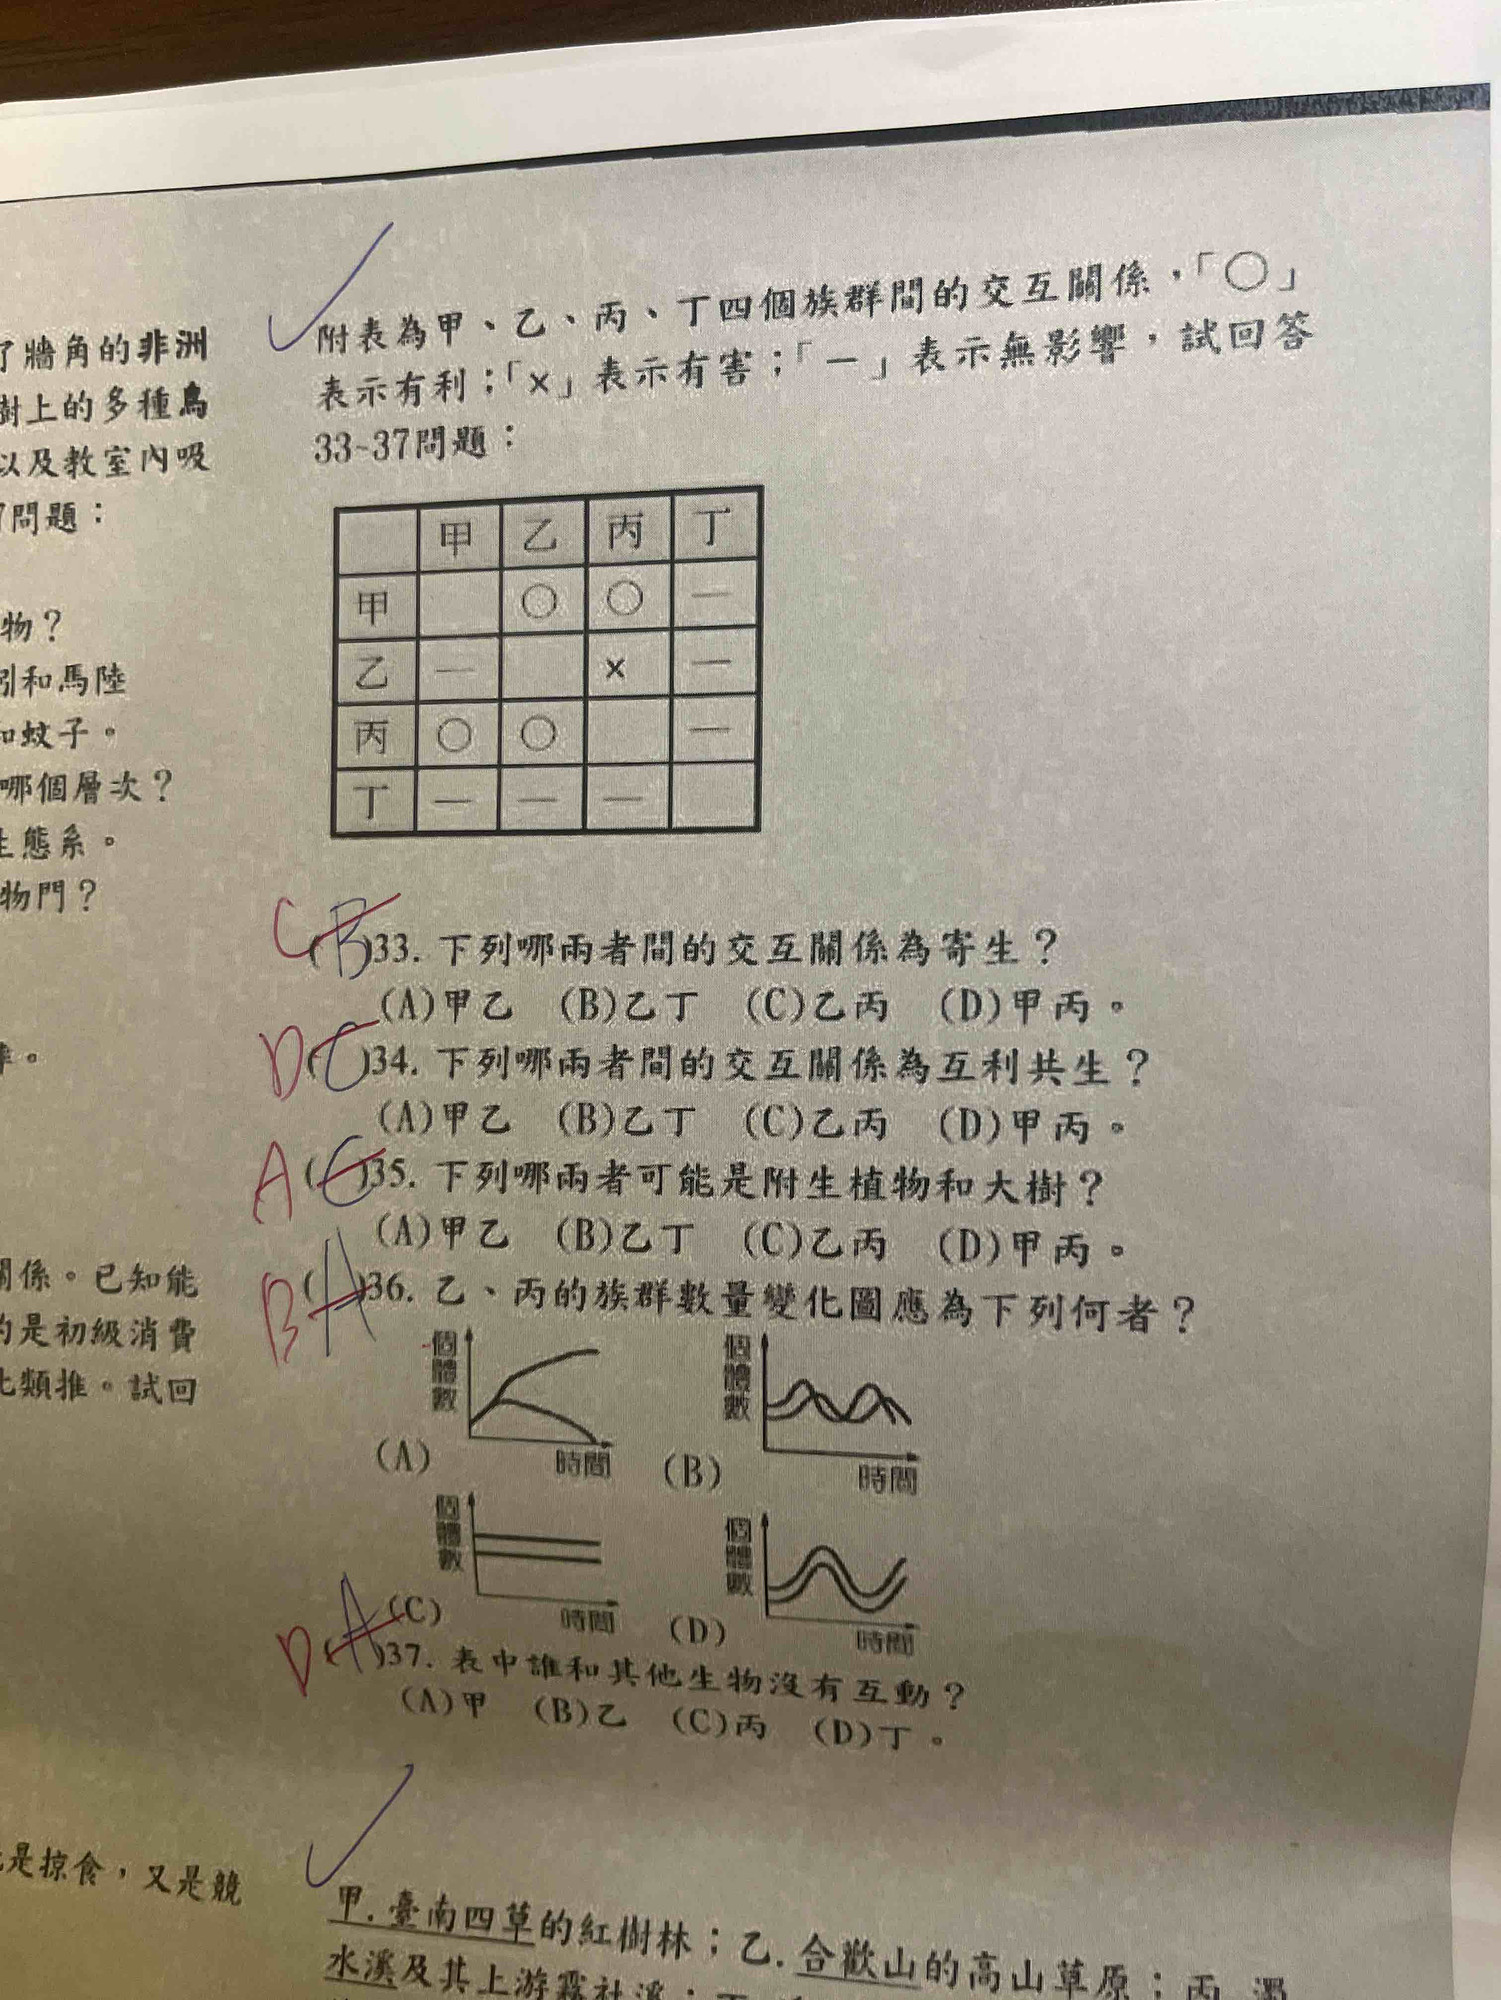 了牆角的非洲
樹上的多種鳥
以及教室內吸
7問題：
物？
引和馬陸
和蚊子。
哪個層次？
生態系。
物門？
關係。已知能
的是初級消費
比類推。試回
是掠食，又是競
附表為甲、乙、丙、丁四個族群間的交互關係，「○」
表示有利；「×」表示有害；「－」表示無影響，試回答
33~37問題：
甲 乙 丙 丁
甲 ○ ○ －
乙 － × －
丙 ○ ○ －
丁 － － －
C (B)33. 下列哪兩者間的交互關係為寄生？
(A)甲乙 (B)乙丁 (C)乙丙 (D)甲丙。
D (C)34. 下列哪兩者間的交互關係為互利共生？
(A)甲乙 (B)乙丁 (C)乙丙 (D)甲丙。
A (C)35. 下列哪兩者可能是附生植物和大樹？
(A)甲乙 (B)乙丁 (C)乙丙 (D)甲丙。
B (A)36. 乙、丙的族群數量變化圖應為下列何者？
個體數
個體數
(A) 時間 (B) 時間
個體數
個體數
(C) 時間 (D) 時間
D (A)37. 表中誰和其他生物沒有互動？
(A)甲 (B)乙 (C)丙 (D)丁。
甲.臺南四草的紅樹林；乙.合歡山的高山草原；丙.濁
水溪及其上游霧社溪；